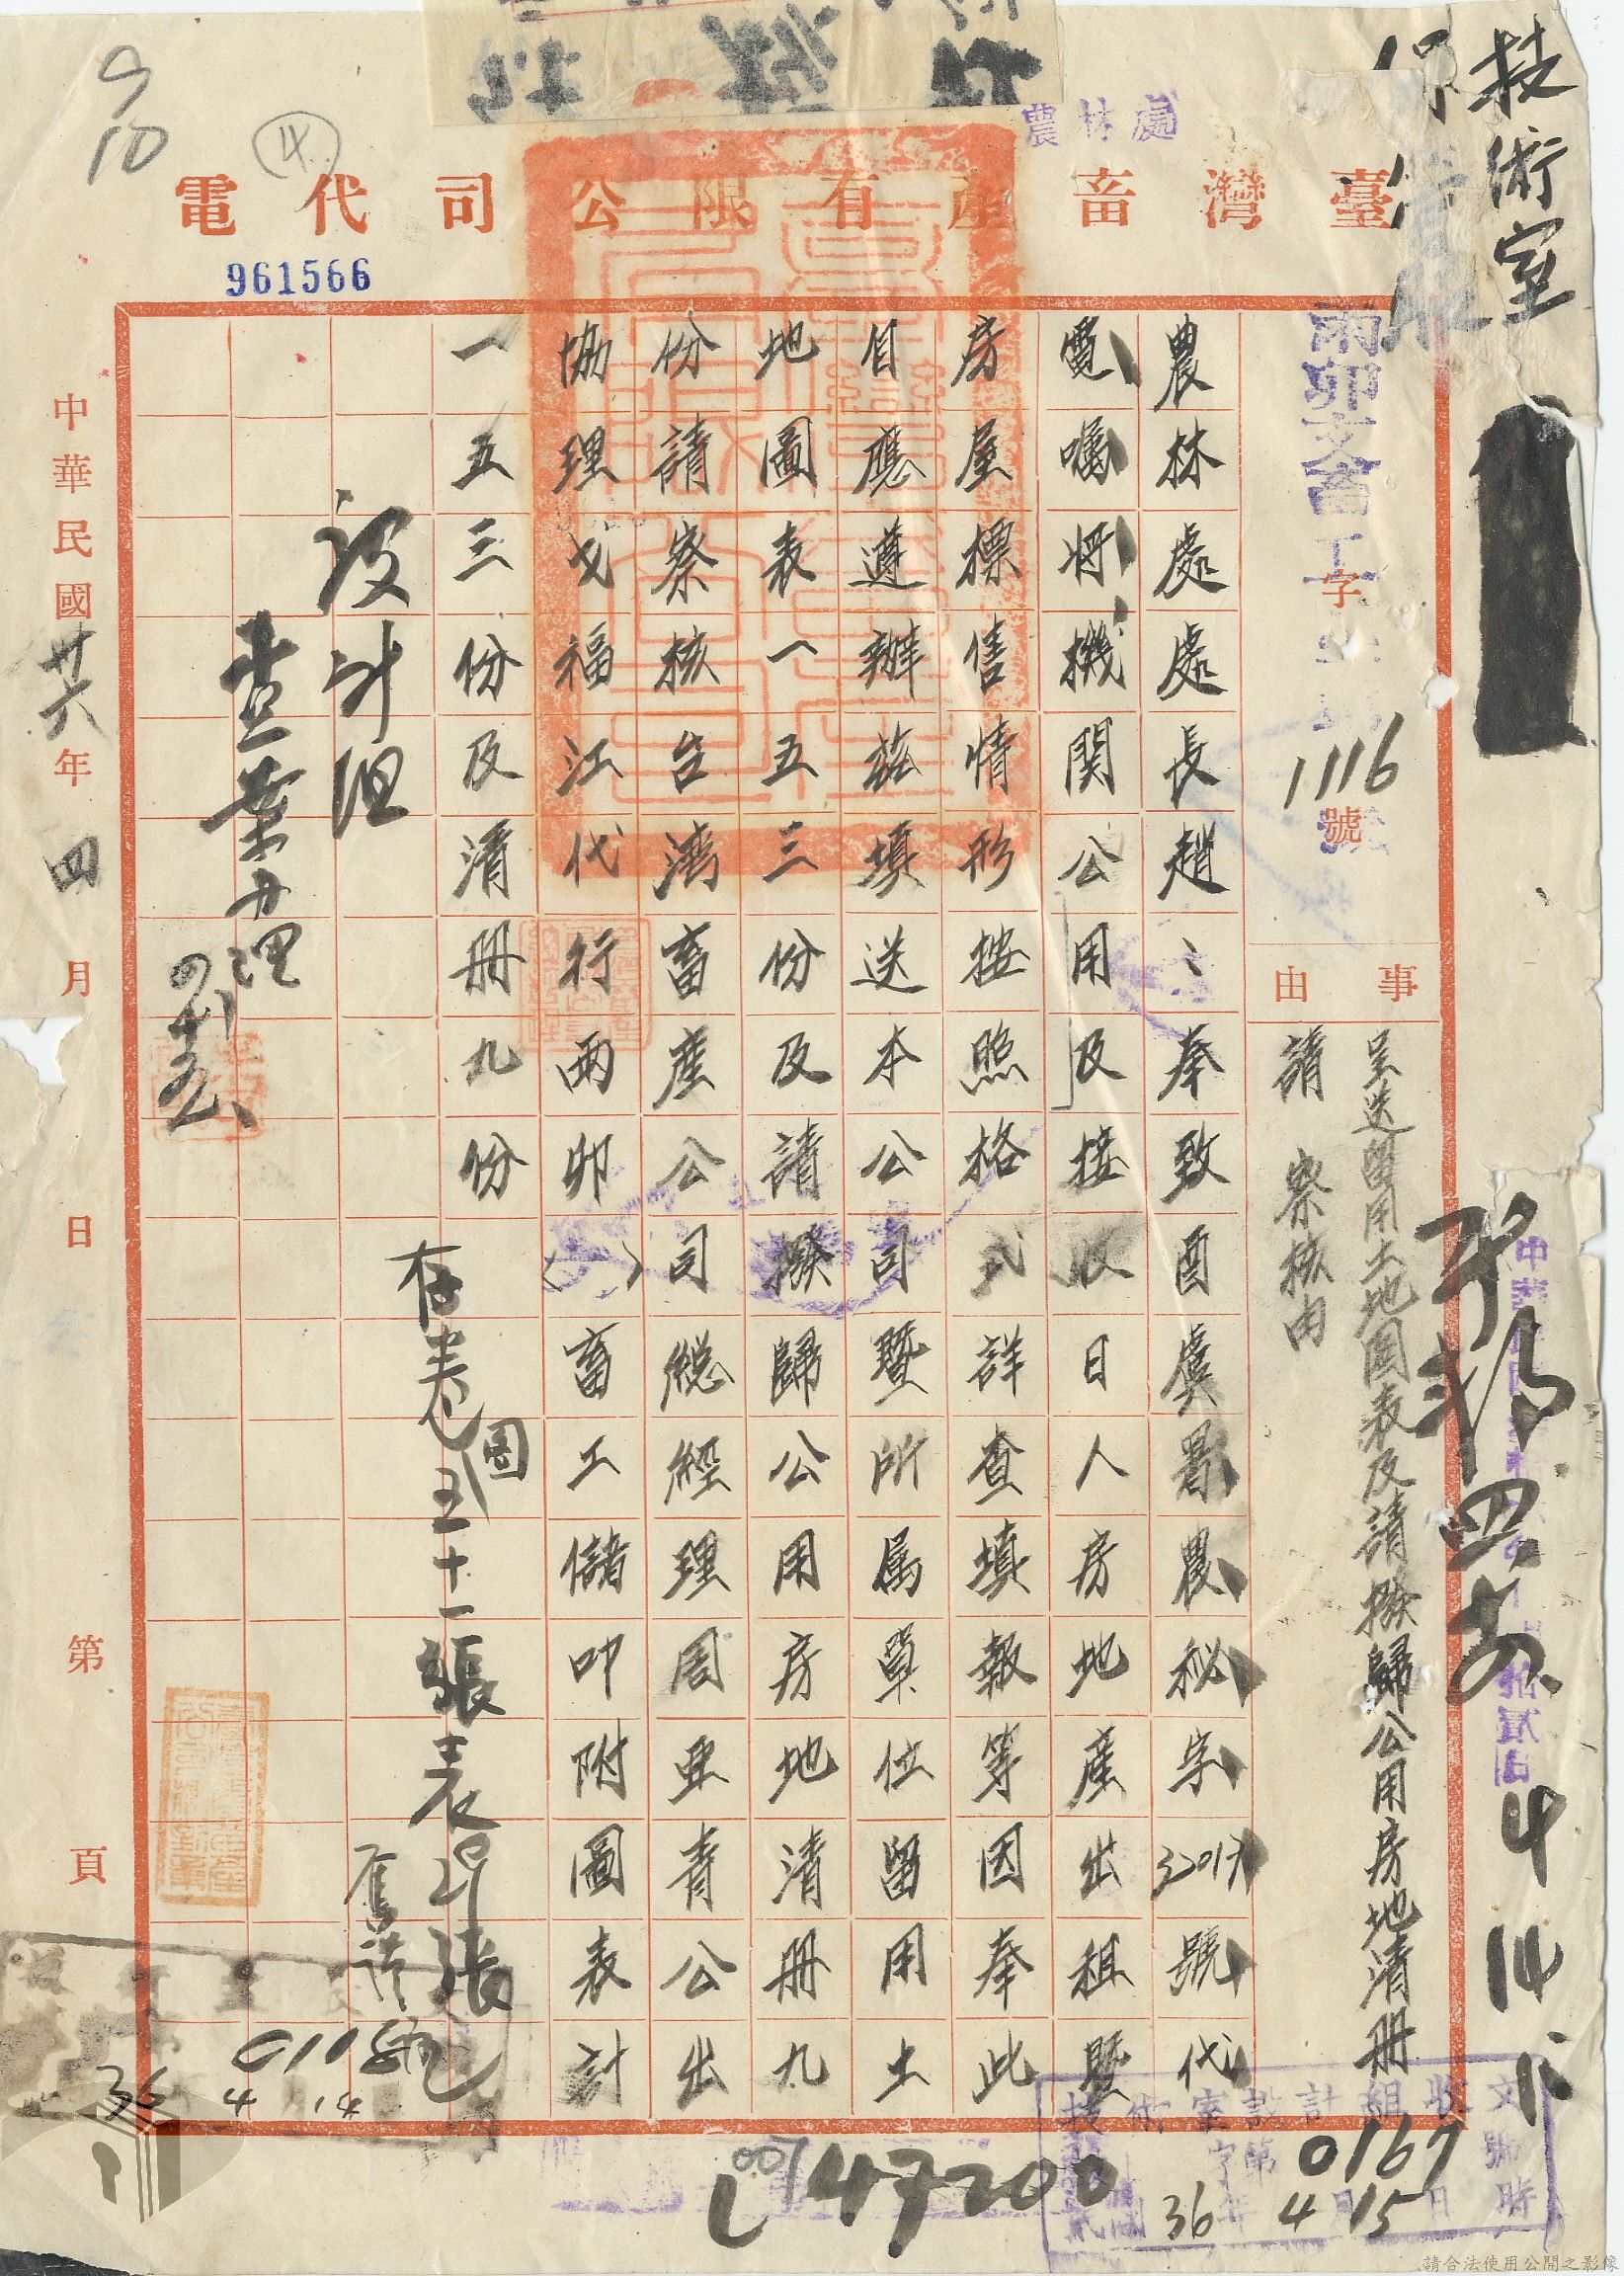 技術室
農林處
臺灣畜產有限公司代電
961566
14
丙卯文畜工字
1116號
事由
呈送留用土地圖表及請撥歸公用房地清冊
請 察核由
農林處處長趙、奉致酉虞署農秘字 號代
電囑將機關公用及接收日人房地產出租暨
房屋標售情形按照格式詳查填報等因奉此
自應遵辦茲填送本公司暨所属單位留用土
地圖表一五三份及請撥歸公用房地清冊九
份請察核台灣畜產公司總經理周亜青公出
協理戈福江代行丙卯( )畜工儲叩附圖表計
一五三份及清冊九份
設計組
查案辦理
存卷圖五十一張表 張
中華民國卅六年四月 日
第 頁
4 14
技術室設計組收文
字第0167號
36年4月15日 時
36 4 14
47200
請合法使用公開之影像